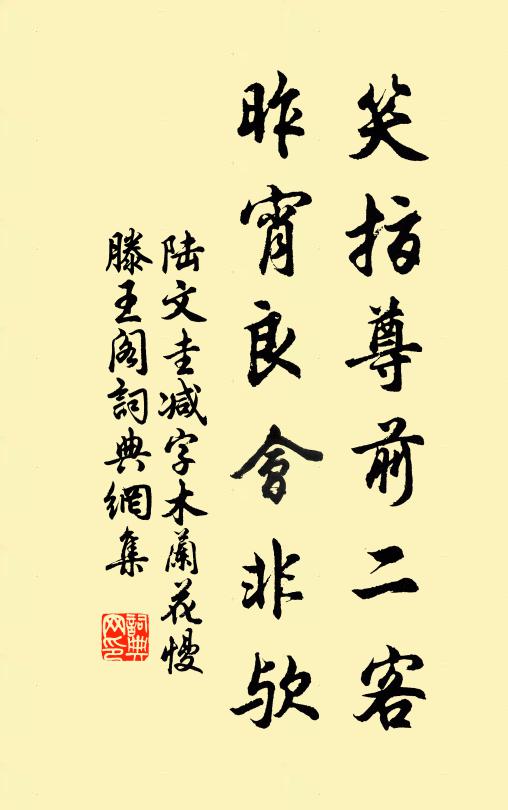 笑指尊前二客
昨宵良會非欤
陆文圭减字木蘭花慢
滕王阁詞典網集
詞典
网印